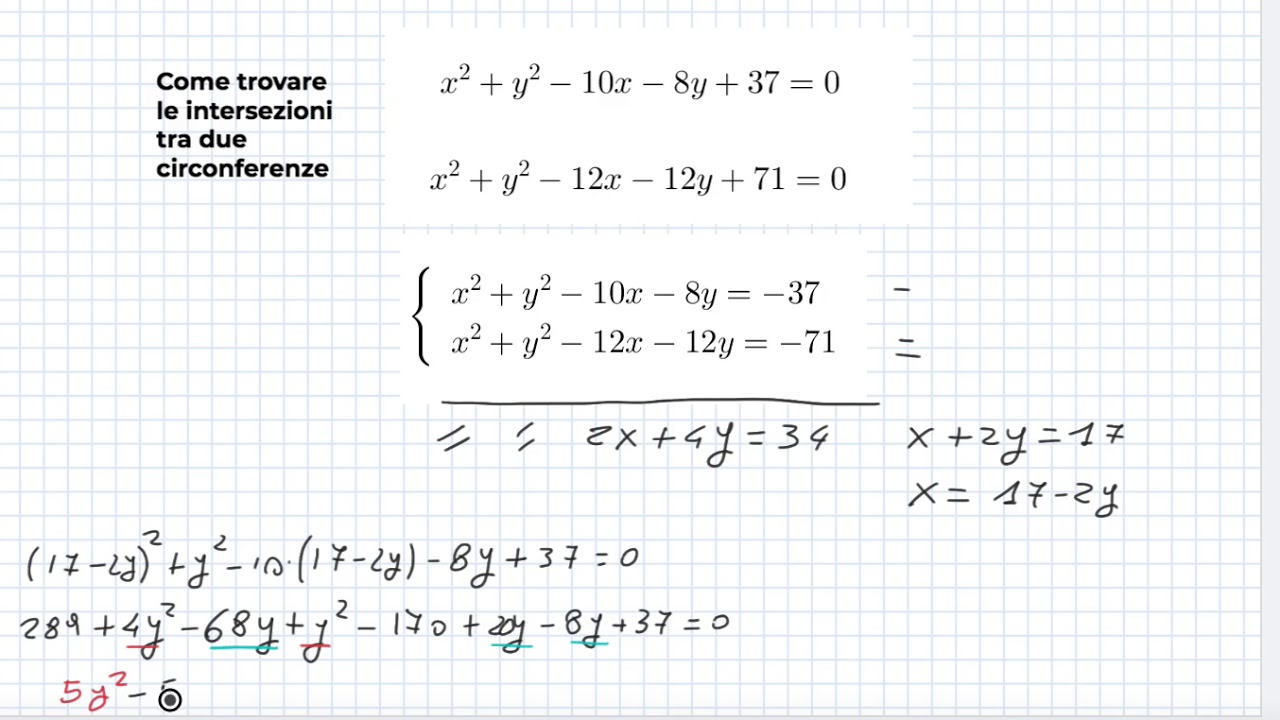 Come trovare
le intersezioni
tra due
circonferenze
x² + y² − 10x − 8y + 37 = 0
x² + y² − 12x − 12y + 71 = 0
x² + y² − 10x − 8y = −37 −
x² + y² − 12x − 12y = −71 =
= = 2x + 4y = 34 x + 2y = 17
x = 17 - 2y
(17 - 2y)² + y² - 10·(17 - 2y) - 8y + 37 = 0
289 + 4y² - 68y + y² - 170 + 20y - 8y + 37 = 0
5y² -